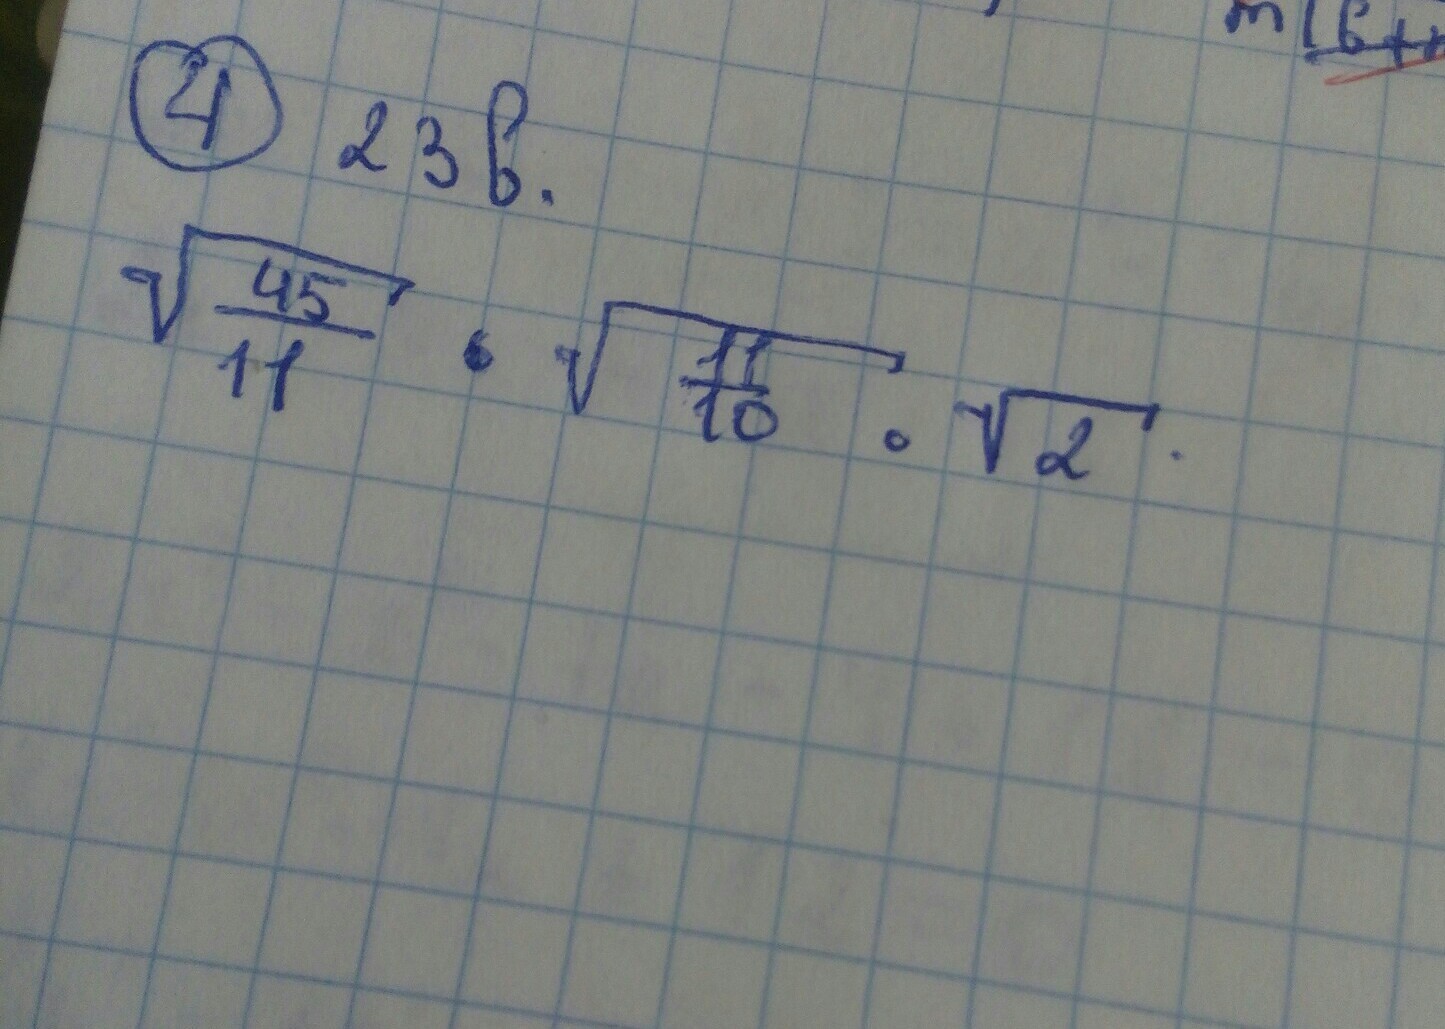 ④ 23 в.
√(45/11) · √(11/10) · √2.